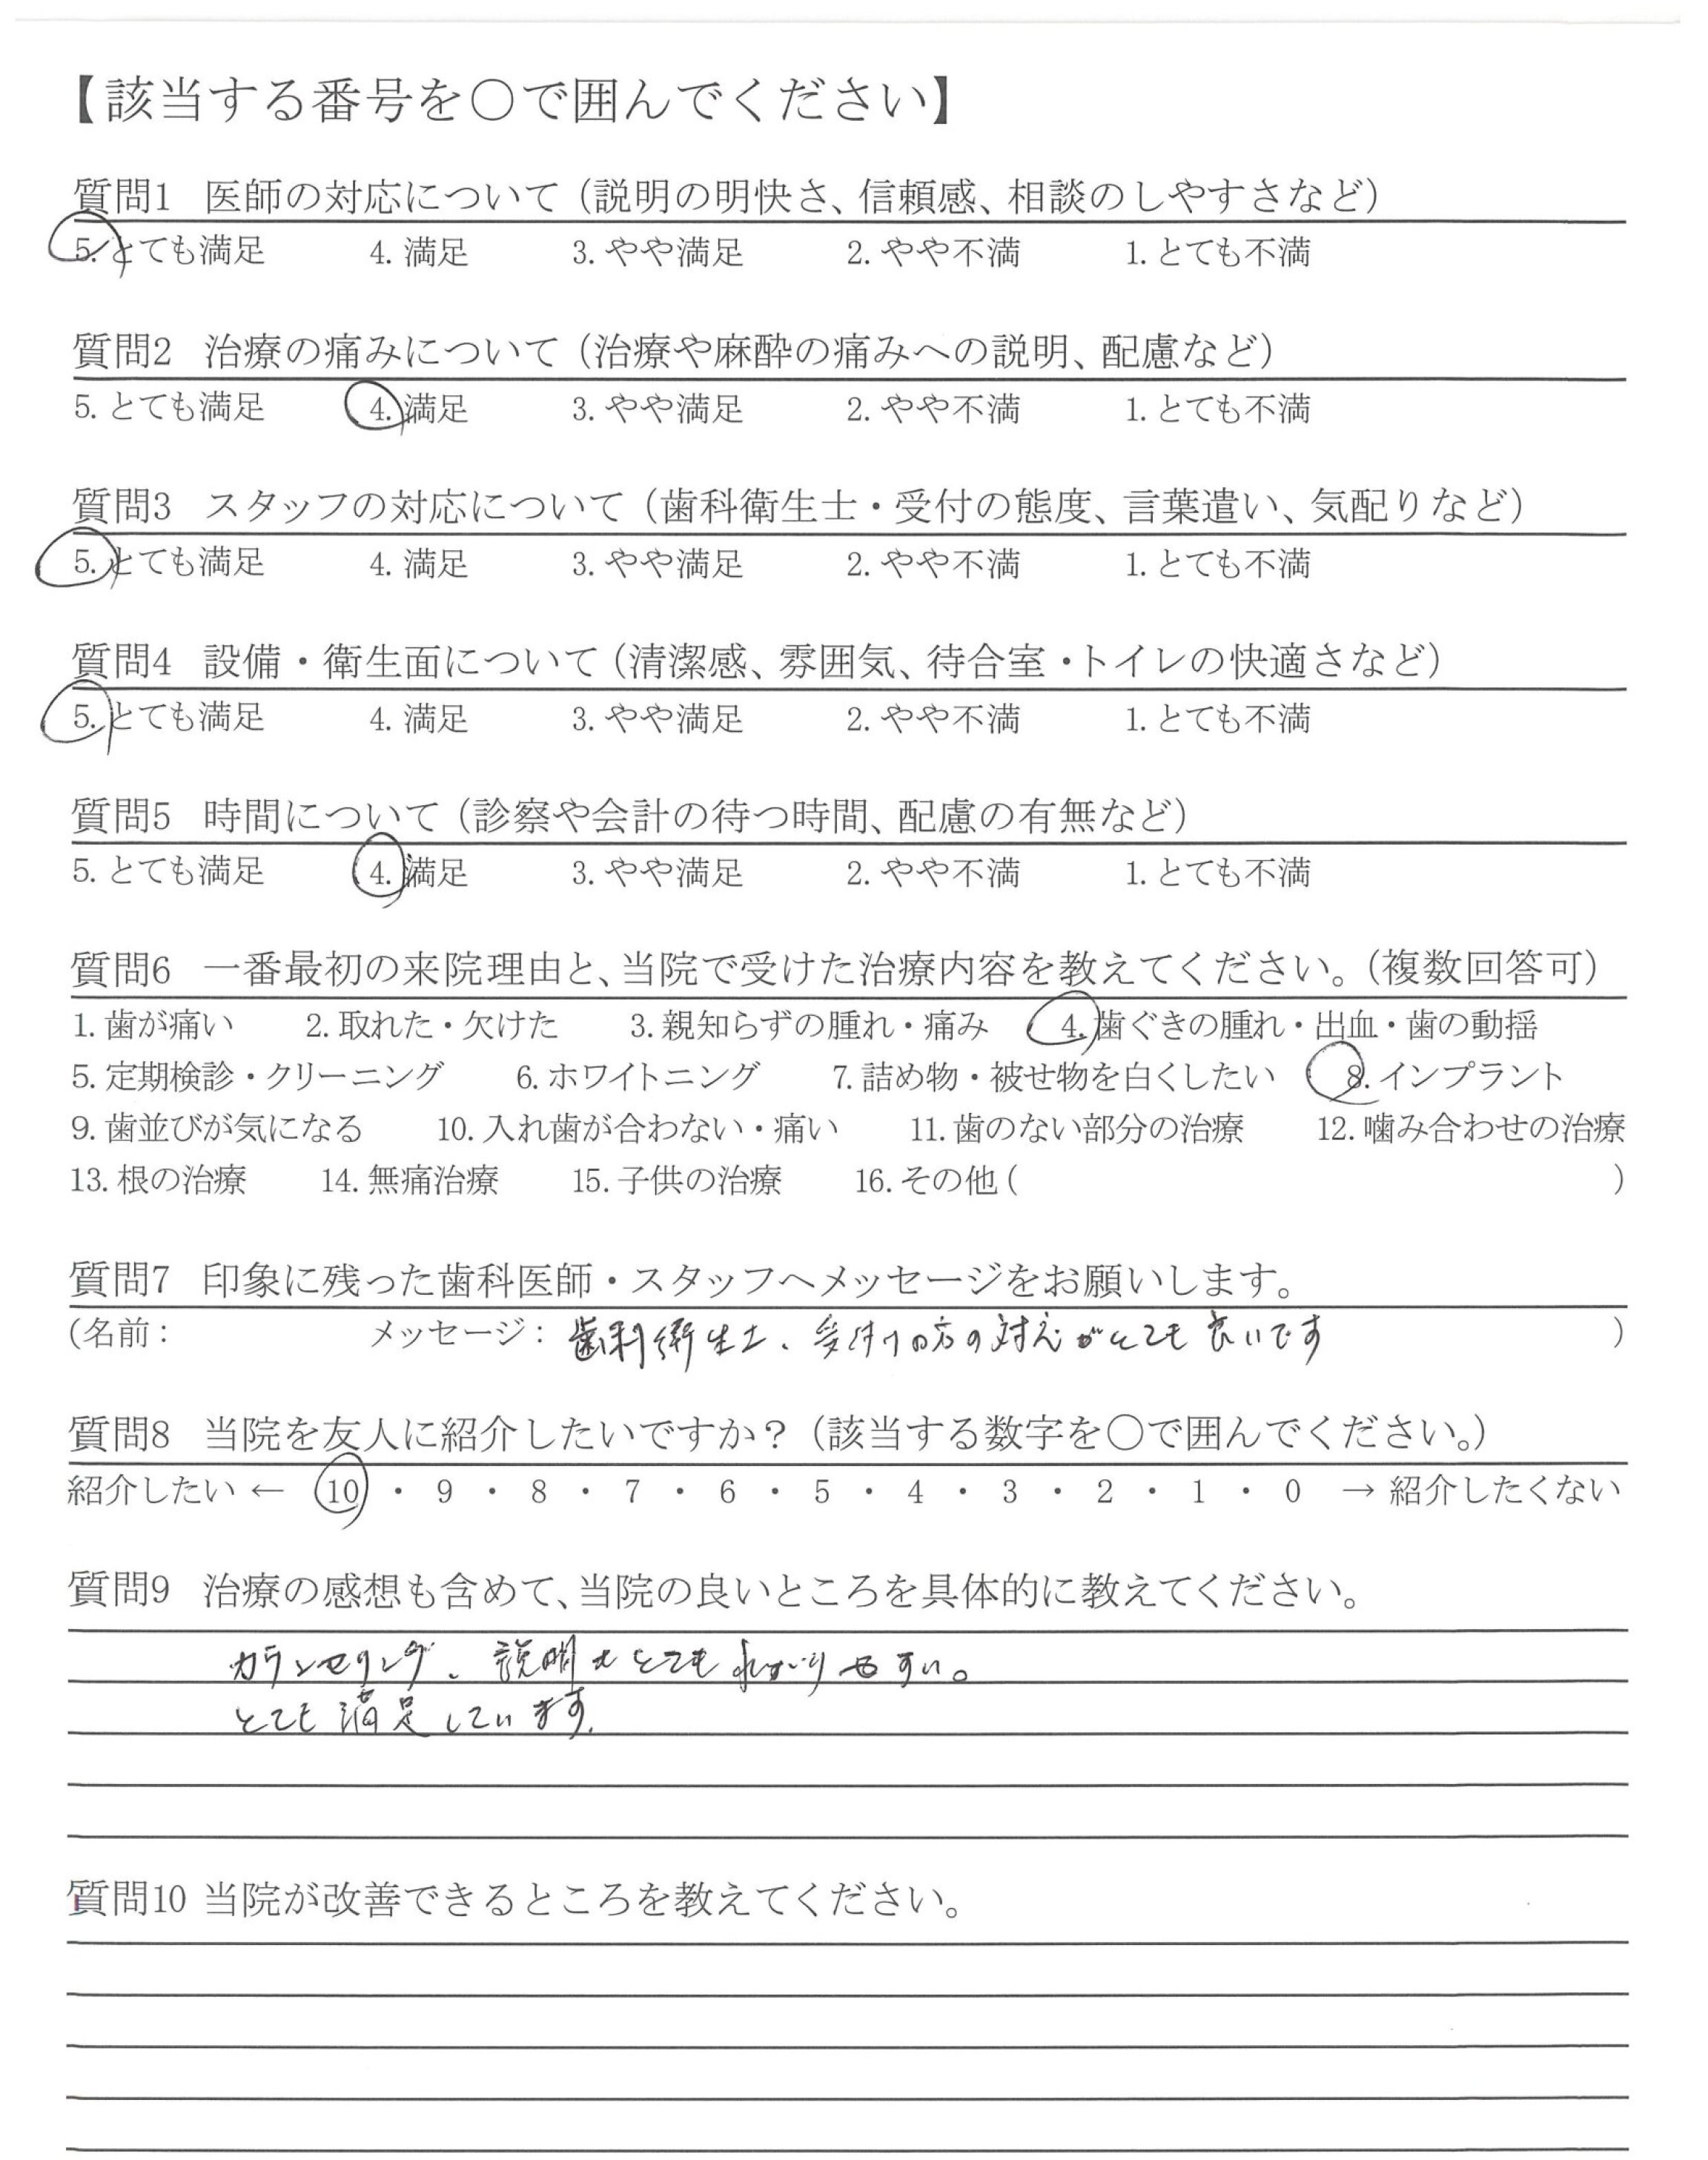 【該当する番号を〇で囲んでください】
質問1 医師の対応について（説明の明快さ、信頼感、相談のしやすさなど）
5. とても満足 4. 満足 3. やや満足 2. やや不満 1. とても不満
質問2 治療の痛みについて（治療や麻酔の痛みへの説明、配慮など）
5. とても満足 4. 満足 3. やや満足 2. やや不満 1. とても不満
質問3 スタッフの対応について（歯科衛生士・受付の態度、言葉遣い、気配りなど）
5. とても満足 4. 満足 3. やや満足 2. やや不満 1. とても不満
質問4 設備・衛生面について（清潔感、雰囲気、待合室・トイレの快適さなど）
5. とても満足 4. 満足 3. やや満足 2. やや不満 1. とても不満
質問5 時間について（診察や会計の待つ時間、配慮の有無など）
5. とても満足 4. 満足 3. やや満足 2. やや不満 1. とても不満
質問6 一番最初の来院理由と、当院で受けた治療内容を教えてください。（複数回答可）
1. 歯が痛い 2. 取れた・欠けた 3. 親知らずの腫れ・痛み 4. 歯ぐきの腫れ・出血・歯の動揺
5. 定期検診・クリーニング 6. ホワイトニング 7. 詰め物・被せ物を白くしたい 8. インプラント
9. 歯並びが気になる 10. 入れ歯が合わない・痛い 11. 歯のない部分の治療 12. 噛み合わせの治療
13. 根の治療 14. 無痛治療 15. 子供の治療 16. その他 ( )
質問7 印象に残った歯科医師・スタッフへメッセージをお願いします。
(名前： メッセージ：歯科衛生士、受付けの方の対応がとても良いです )
質問8 当院を友人に紹介したいですか？（該当する数字を〇で囲んでください。）
紹介したい ← 10 ・ 9 ・ 8 ・ 7 ・ 6 ・ 5 ・ 4 ・ 3 ・ 2 ・ 1 ・ 0 → 紹介したくない
質問9 治療の感想も含めて、当院の良いところを具体的に教えてください。
カウンセリング、説明もとてもわかりやすい。
とても満足しています。
質問10 当院が改善できるところを教えてください。